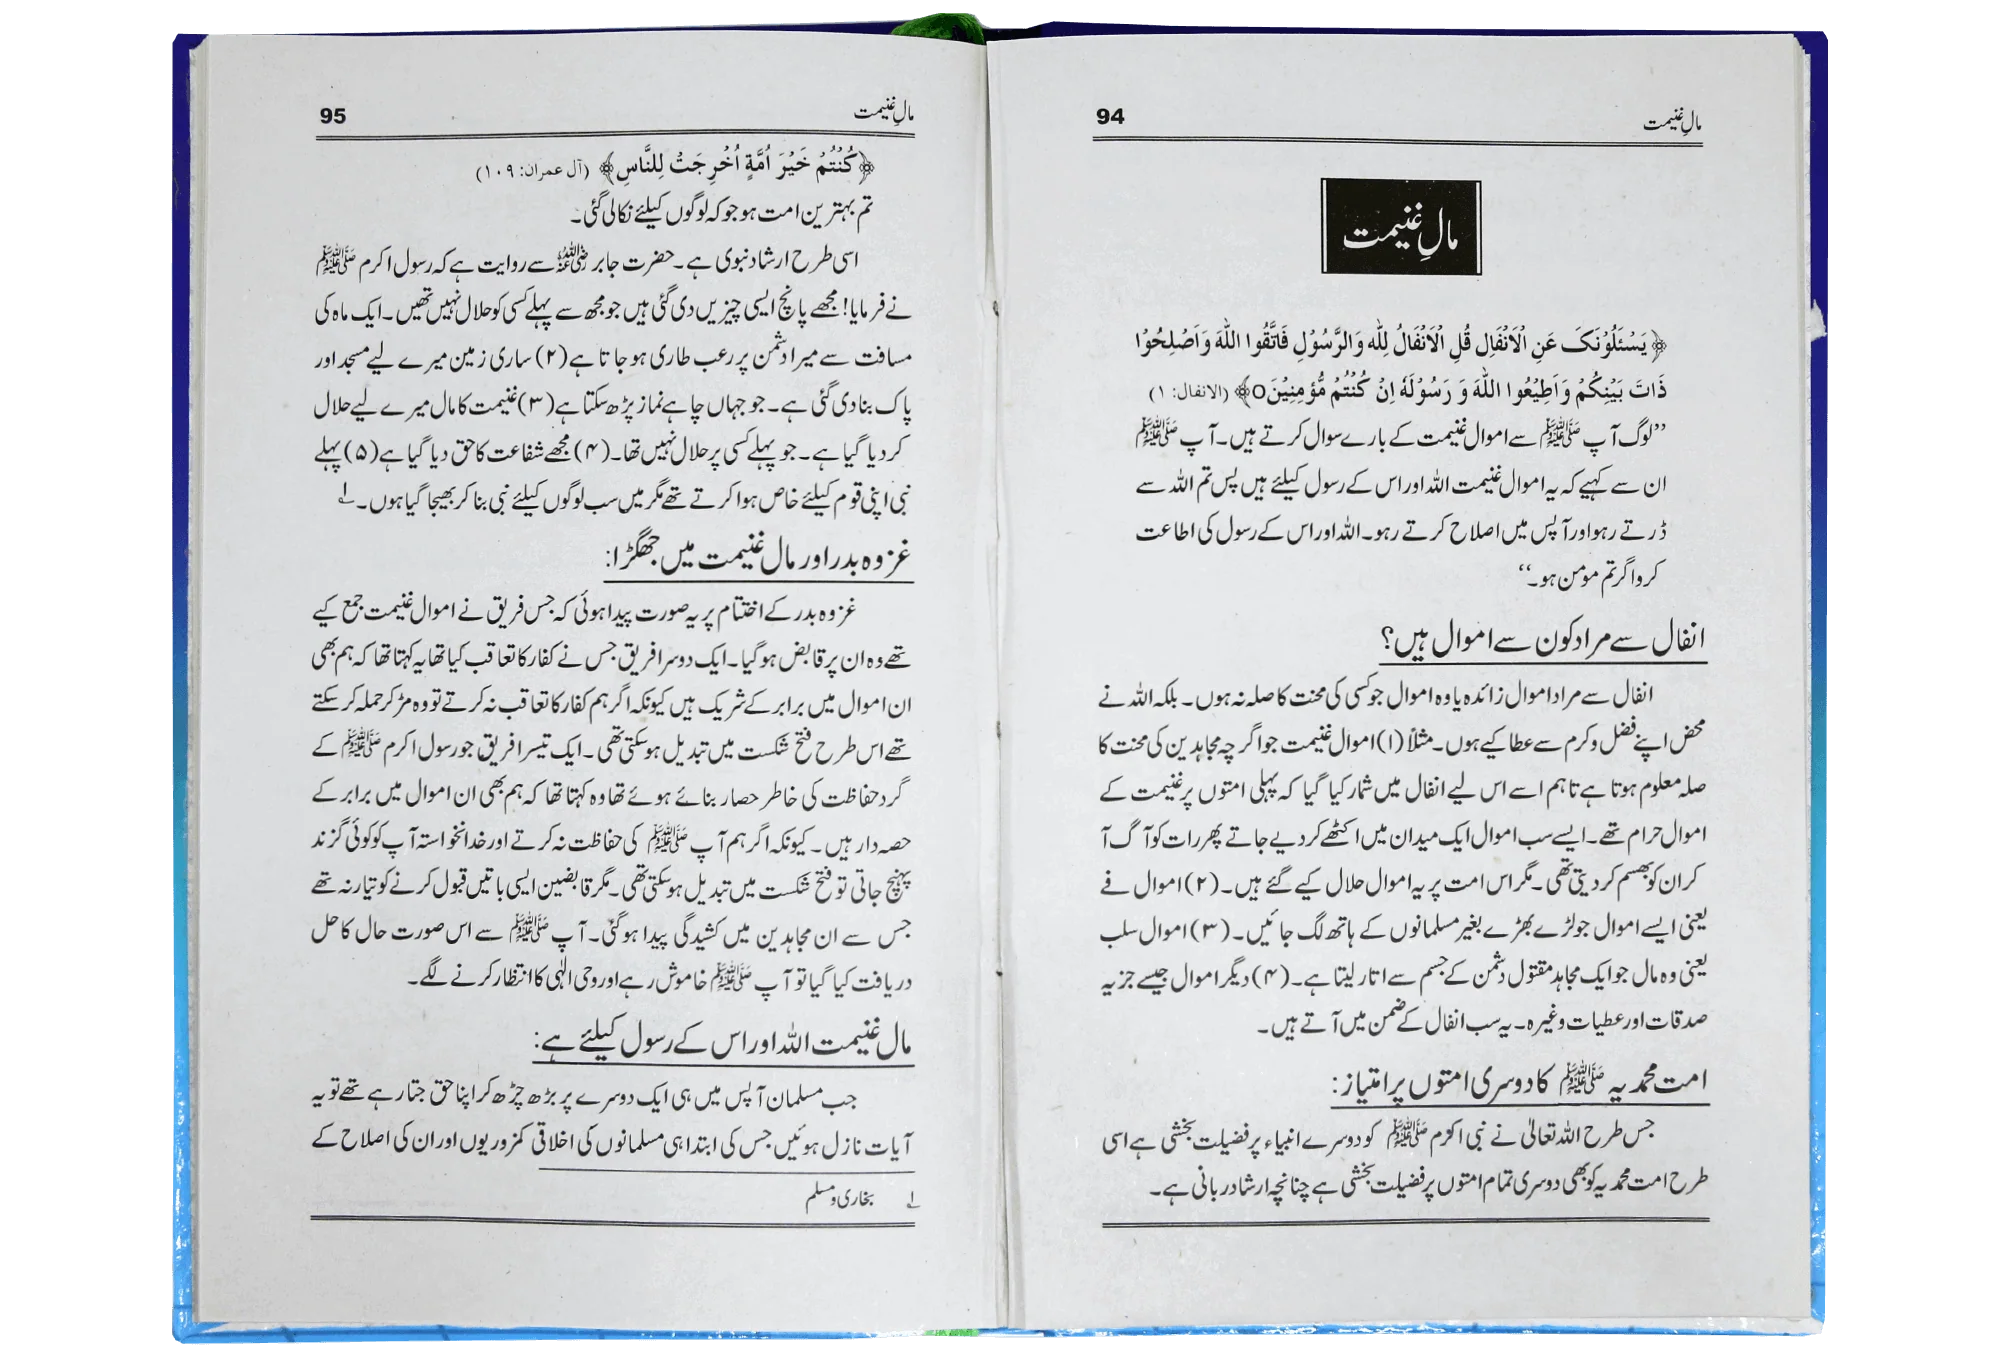 مالِ غنیمت
94
مالِ غنیمت
﴿یَسْئَلُوْنَکَ عَنِ الْاَنْفَالِ قُلِ الْاَنْفَالُ لِلّٰہِ وَالرَّسُوْلِ فَاتَّقُوا اللّٰہَ وَاَصْلِحُوْا
ذَاتَ بَیْنِکُمْ وَاَطِیْعُوا اللّٰہَ وَ رَسُوْلَہٗ اِنْ کُنْتُمْ مُّؤْمِنِیْنَO﴾ (الانفال: ۱)
’’لوگ آپ ﷺ سے اموال غنیمت کے بارے سوال کرتے ہیں۔ آپ ﷺ
ان سے کہیے کہ یہ اموال غنیمت اللہ اور اس کے رسول کیلئے ہیں پس تم اللہ سے
ڈرتے رہو اور آپس میں اصلاح کرتے رہو۔ اللہ اور اس کے رسول کی اطاعت
کرو اگر تم مومن ہو۔‘‘
انفال سے مراد کون سے اموال ہیں؟
انفال سے مراد اموال زائدہ یا وہ اموال جو کسی کی محنت کا صلہ نہ ہوں۔ بلکہ اللہ نے
محض اپنے فضل و کرم سے عطا کیے ہوں۔ مثلاً (۱) اموال غنیمت جو اگرچہ مجاہدین کی محنت کا
صلہ معلوم ہوتا ہے تاہم اسے اس لیے انفال میں شمار کیا گیا کہ پہلی امتوں پر غنیمت کے
اموال حرام تھے۔ ایسے سب اموال ایک میدان میں اکٹھے کر دیے جاتے پھر رات کو آگ آ
کر ان کو بھسم کر دیتی تھی۔ مگر اس امت پر یہ اموال حلال کیے گئے ہیں۔ (۲) اموال فے
یعنی ایسے اموال جو لڑے بھڑے بغیر مسلمانوں کے ہاتھ لگ جائیں۔ (۳) اموال سلب
یعنی وہ مال جو ایک مجاہد مقتول دشمن کے جسم سے اتار لیتا ہے۔ (۴) دیگر اموال جیسے جزیہ
صدقات اور عطیات وغیرہ۔ یہ سب انفال کے ضمن میں آتے ہیں۔
امت محمدیہ ﷺ کا دوسری امتوں پر امتیاز:
جس طرح اللہ تعالیٰ نے نبی اکرم ﷺ کو دوسرے انبیاء پر فضیلت بخشی ہے اسی
طرح امت محمدیہ کو بھی دوسری تمام امتوں پر فضیلت بخشی ہے چنانچہ ارشاد ربانی ہے۔
مالِ غنیمت
95
﴿کُنْتُمْ خَیْرَ اُمَّۃٍ اُخْرِجَتْ لِلنَّاسِ﴾ (آل عمران: ۱۰۹)
تم بہترین امت ہو جو کہ لوگوں کیلئے نکالی گئی۔
اسی طرح ارشاد نبوی ہے۔ حضرت جابر رضی اللہ عنہ سے روایت ہے کہ رسول اکرم ﷺ
نے فرمایا! مجھے پانچ ایسی چیزیں دی گئی ہیں جو مجھ سے پہلے کسی کو حلال نہیں تھیں۔ ایک ماہ کی
مسافت سے میرا دشمن پر رعب طاری ہو جاتا ہے (۲) ساری زمین میرے لیے مسجد اور
پاک بنا دی گئی ہے۔ جو جہاں چاہے نماز پڑھ سکتا ہے (۳) غنیمت کا مال میرے لیے حلال
کر دیا گیا ہے۔ جو پہلے کسی پر حلال نہیں تھا۔ (۴) مجھے شفاعت کا حق دیا گیا ہے (۵) پہلے
نبی اپنی قوم کیلئے خاص ہوا کرتے تھے مگر میں سب لوگوں کیلئے نبی بنا کر بھیجا گیا ہوں۔ ۱
غزوہ بدر اور مال غنیمت میں جھگڑا:
غزوہ بدر کے اختتام پر یہ صورت پیدا ہوئی کہ جس فریق نے اموال غنیمت جمع کیے
تھے وہ ان پر قابض ہو گیا۔ ایک دوسرا فریق جس نے کفار کا تعاقب کیا تھا یہ کہتا تھا کہ ہم بھی
ان اموال میں برابر کے شریک ہیں کیونکہ اگر ہم کفار کا تعاقب نہ کرتے تو وہ مڑ کر حملہ کر سکتے
تھے اس طرح فتح شکست میں تبدیل ہو سکتی تھی۔ ایک تیسرا فریق جو رسول اکرم ﷺ کے
گرد حفاظت کی خاطر حصار بنائے ہوئے تھا وہ کہتا تھا کہ ہم بھی ان اموال میں برابر کے
حصہ دار ہیں۔ کیونکہ اگر ہم آپ ﷺ کی حفاظت نہ کرتے اور خدانخواستہ آپ کو کوئی گزند
پہنچ جاتی تو فتح شکست میں تبدیل ہو سکتی تھی۔ مگر قابضین ایسی باتیں قبول کرنے کو تیار نہ تھے
جس سے ان مجاہدین میں کشیدگی پیدا ہو گئی۔ آپ ﷺ سے اس صورت حال کا حل
دریافت کیا گیا تو آپ ﷺ خاموش رہے اور وحی الٰہی کا انتظار کرنے لگے۔
مال غنیمت اللہ اور اس کے رسول کیلئے ہے:
جب مسلمان آپس میں ہی ایک دوسرے پر بڑھ چڑھ کر اپنا حق جتا رہے تھے تو یہ
آیات نازل ہوئیں جس کی ابتدا ہی مسلمانوں کی اخلاقی کمزوریوں اور ان کی اصلاح کے
۱ بخاری و مسلم